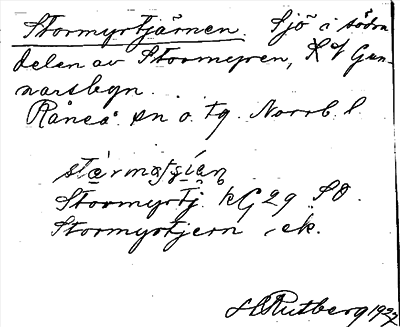 Stormyrtjärnen. Sjö i södra
delen av Stormyren, K of Gun-
narsbyn.
Råneå sn o. tg. Norrb. l.
Stormyrtj. kG 29 SO.
Stormyrtjern, ek.
H Rutberg 1927